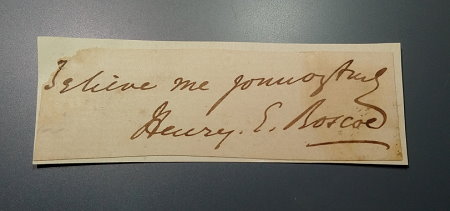 Believe me yours truly
Henry. E. Roscoe